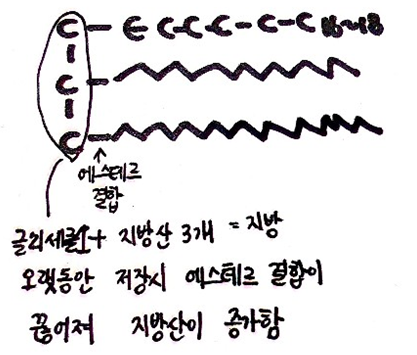 C - C C-C-C-C-C 16~18
C
C
에스테르
결합
글리세롤1+ 지방산 3개 = 지방
오랫동안 저장시 에스테르 결합이
끊어져 지방산이 증가함